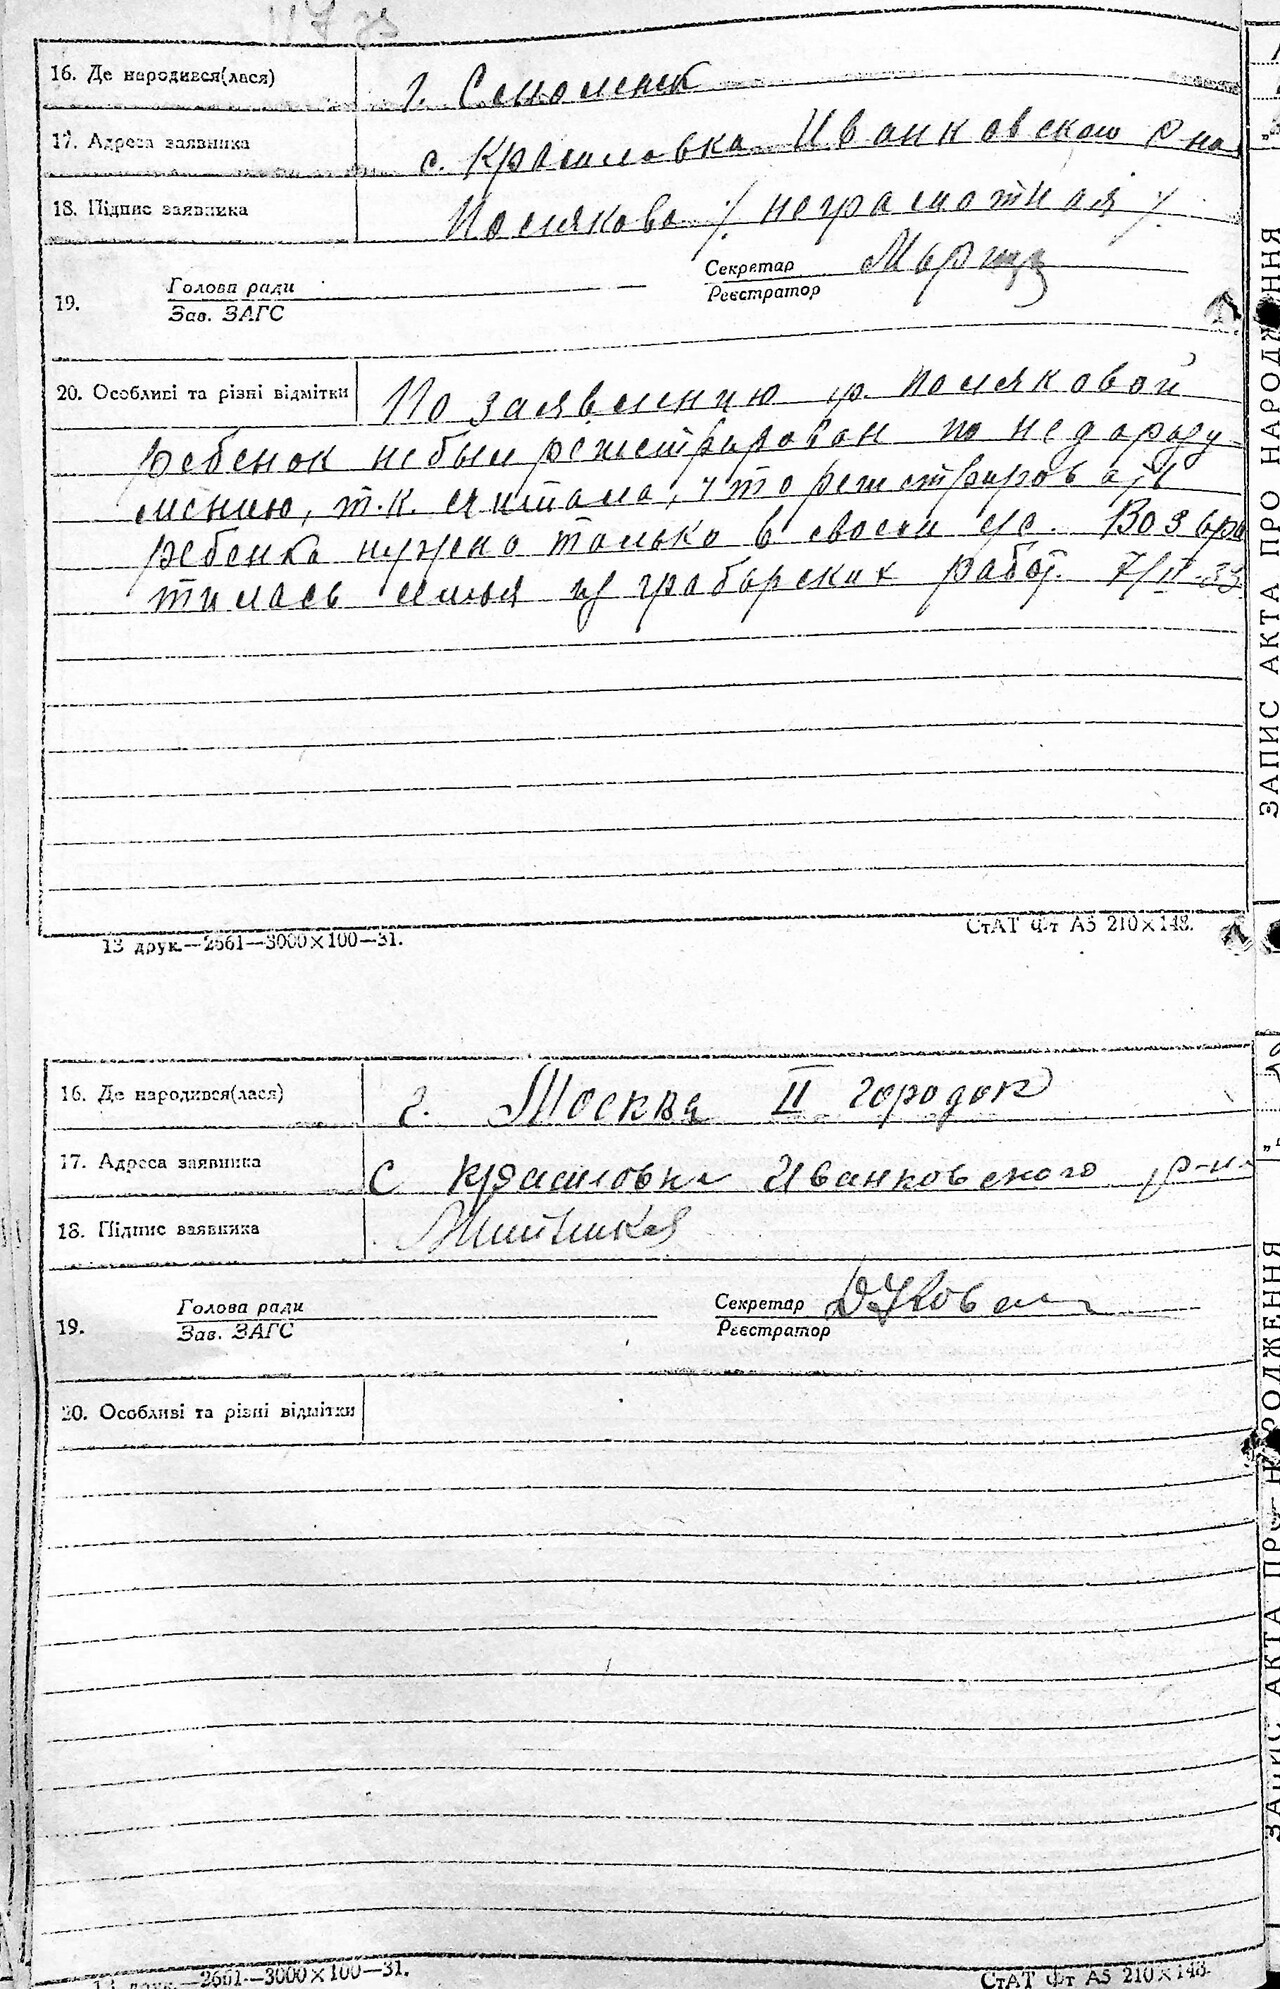 117 зв
16. Де народився(лася) г. Смоленск
17. Адреса заявника с. Красиловка Иванковского р на
18. Підпис заявника Полякова /. неграмотная /.
Секретар
Голова ради Реєстратор
19. Зав. ЗАГС
20. Особливі та різні відмітки По заявлению гр. Поляковой
ребенок небыл регистрирован по недоразу
мению, т.к. считала, что регистрировать
ребенка нужно только в своем с/с. Возвра
тилась семья из грабарских работ. 7/II-33
13 друк.—2661—3000×100—31. СтАТ Фт А5 210×148.
16. Де народився(лася) г. Москва II городок
17. Адреса заявника с Красиловка Иванковского р-на
18. Підпис заявника
Голова ради Секретар
19. Зав. ЗАГС Реєстратор
20. Особливі та різні відмітки
13 друк.—2661—3000×100—31. СтАТ Фт А5 210×148.
ЗАПИС АКТА ПРО НАРОДЖЕННЯ
ЗАПИС АКТА ПРО НАРОДЖЕННЯ